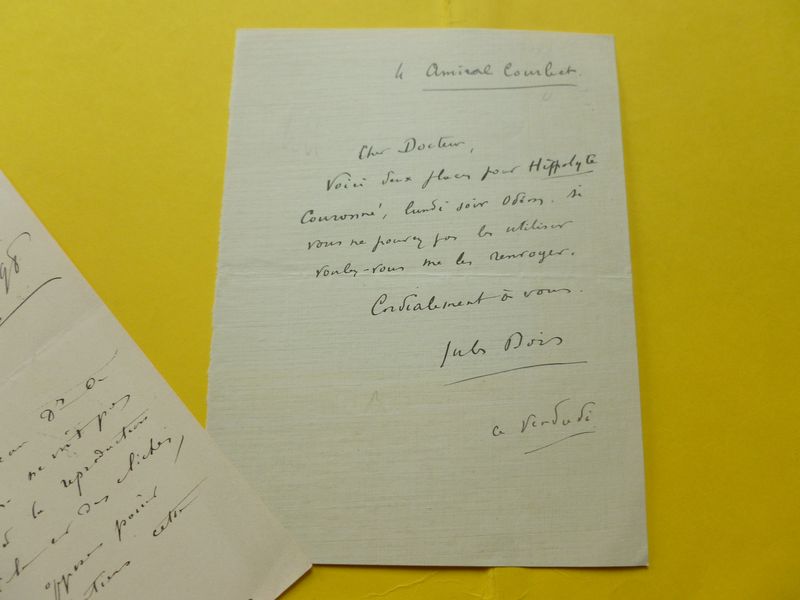 4 Amiral Courbet.
Cher Docteur,
Voici deux places pour Hippolyte
Couronné, lundi soir Odéon. Si
vous ne pouvez pas les utiliser
voulez-vous me les renvoyer.
Cordialement à vous.
Jules Bois
ce Vendredi
98
Dr
ne pas
la reproduction
des clichés,